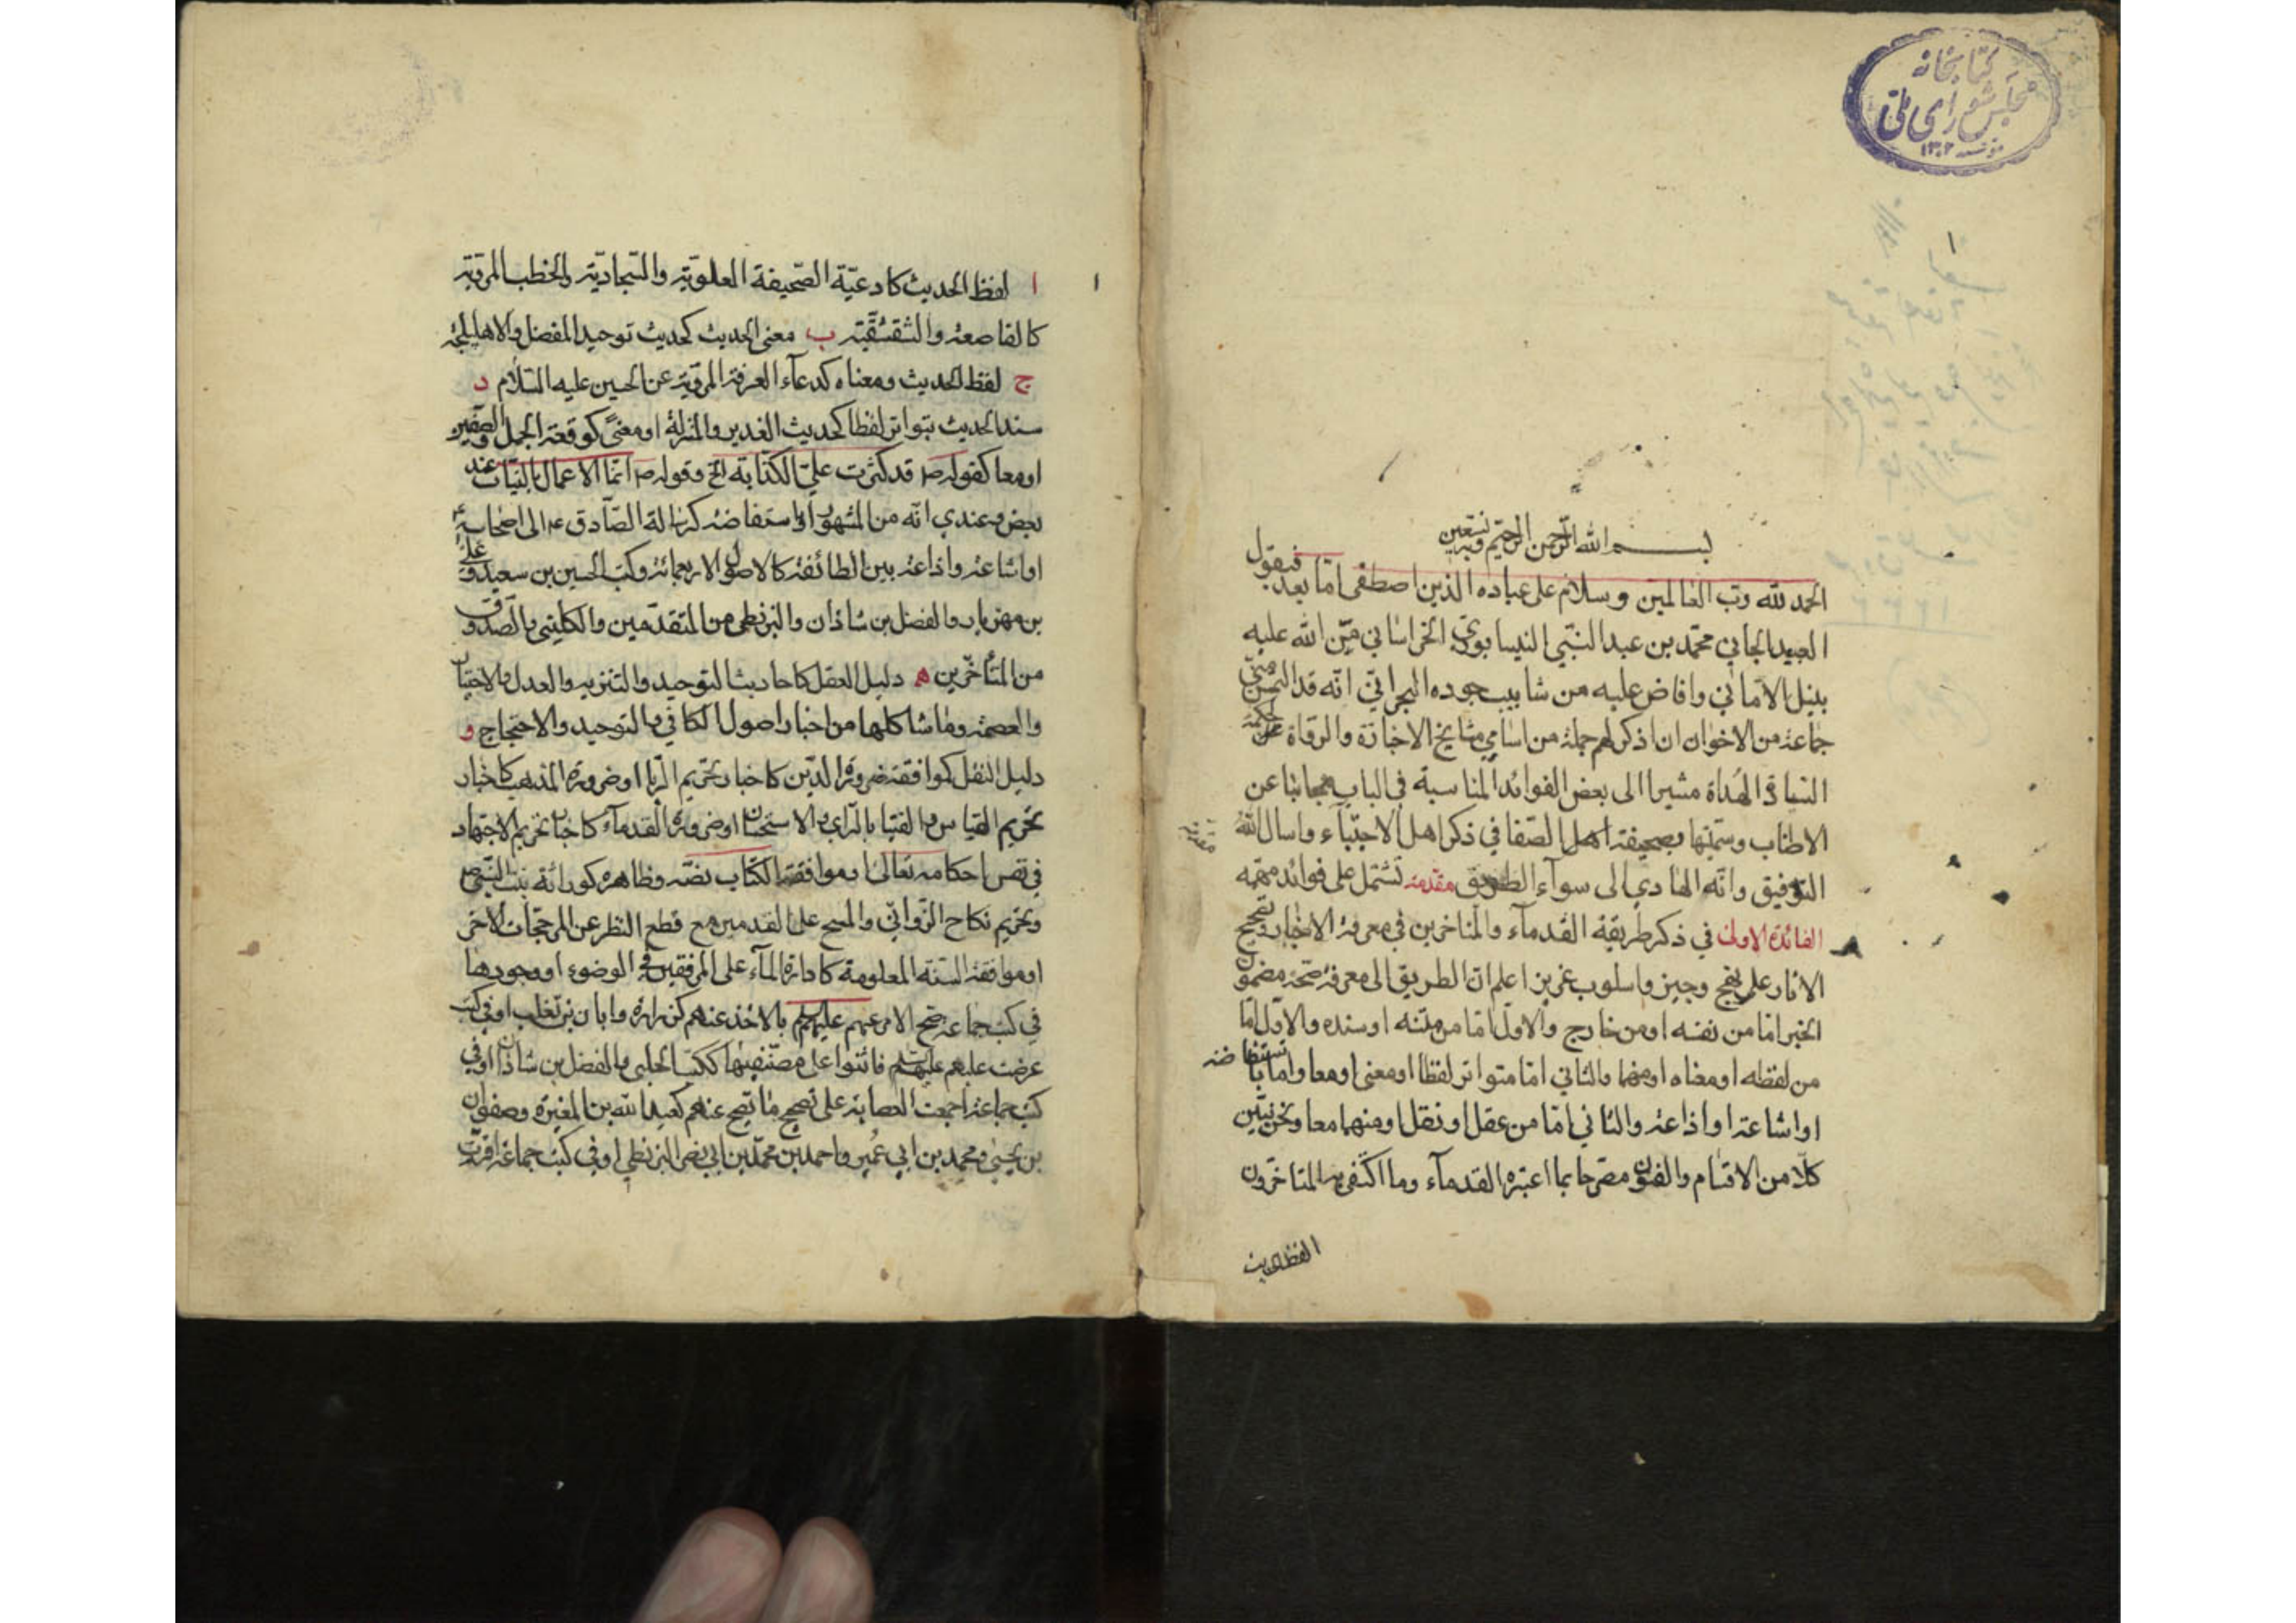 كتابخانه
مجلس شورای ملی
١٣٠٢
بسم الله الرحمن الرحيم وبه نستعين
الحمد لله رب العالمين وسلام على عباده الذين اصطفى اما بعد فيقول
العبد الجاني محمد بن عبد النبي النيسابوري الخراساني من الله عليه
بنيل الاماني وافاض عليه من شابيب جوده انه قد التمس مني
جماعة من الاخوان ان اذكر لهم جملة من اسامي مشايخ الاجازة والرواة
الهداة مشيرا الى بعض الفوائد المناسبة في الباب مجانبا عن
الاطناب وسميتها بصحيفة اهل الصفا في ذكر اهل الاجتباء واسال الله
التوفيق وانه الهادي الى سواء الطريق مقدمة تشتمل على فوائد مهمة
الفائدة الاولى في ذكر طريقة القدماء والمتاخرين في معرفة الاخبار وتصحيح
الاثار على نهج وجيز واسلوب عزيز اعلم ان الطريق الى معرفة صحة مضمون
الخبر اما من نفسه او من خارج والاول اما من متنه او سنده والاول اما
من لفظه او معناه او منهما والثاني اما متواتر لفظا او معنى او معا واما باستفاضة
او اشاعة او اذاعة والثاني اما من عقل او نقل او منهما معا ونحن نبين
كلا من الاقسام والفنون مصرحا بما اعتبره القدماء وما اكتفى به المتاخرون
الفظ الحديث
١
ا لفظ الحديث كادعية الصحيفة العلوية والسجادية والخطب المروية
كالقاصعة والشقشقية ب معنى الحديث كحديث توحيد المفضل والاهليلجة
ج لفظ الحديث ومعناه كدعاء العرفة المروية عن الحسين عليه السلام د
سند الحديث بتواتر لفظا كحديث الغدير والمنزلة او معنى كوقعة الجمل والصفين
او معا كقوله ص قد كثرت علي الكذابة الخ وقوله ص انما الاعمال بالنيات عند
بعض وعندي انه من المشهور او باستفاضة كرسالة الصادق ع الى اصحابه
او اشاعة واذاعة بين الطائفة كالاصول الاربعمائة وكتب الحسين بن سعيد وعلي
بن مهزيار والفضل بن شاذان والبزنطي من المتقدمين والكليني والصدوق
من المتأخرين ه دليل العقل كاحاديث التوحيد والتنزيه والعدل والاختيار
والعصمة وما شاكلها من اخبار اصول الكافي والتوحيد والاحتجاج و
دليل النقل كموافقة ضرورة الدين كاخبار تحريم الربا او ضرورة المذهب كاخبار
تحريم القياس والفتيا بالراي والاستحسان او ضرورة القدماء كاخبار تحريم الاجتهاد
في نفس احكامه تعالى او موافقة الكتاب نصه وظاهره كوراثة بنت النبي ص
وتحريم نكاح الزواني والمسح على القدمين مع قطع النظر عن المرجحات الاخر
او موافقة السنة المعلومة كادارة الماء على المرفقين في الوضوء او وجودها
في كتب جماعة صح الامر عنهم عليهم بالاخذ عنهم كزرارة وابان بن تغلب او في كتب
عرضت عليهم عليهم فاثنوا على مصنفيها ككتب الحلبي والفضل بن شاذان او في
كتب جماعة اجمعت العصابة على تصحيح ما تصح عنهم كعبد الله بن المغيرة وصفوان
بن يحيى ومحمد بن ابي عمير واحمد بن محمد بن ابي نصر البزنطي او في كتب جماعة اقرت